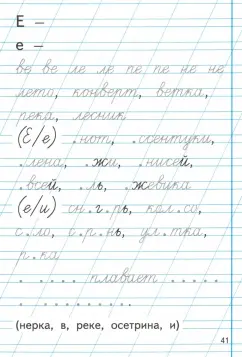 Е –
е –
ве ве ле ле пе пе не не
лето, конверт, ветка,
река, лесник
(Е/е) .нот, .сентуки,
.лена, .жи, .нисей,
.всей, .ль, .жевика
(е/и) сн.г.рь, кол.со,
с.ло, с.р.нь, ул.тка,
р.ка
. .... плавает ....
. ........
(нерка, в, реке, осетрина, и)
41